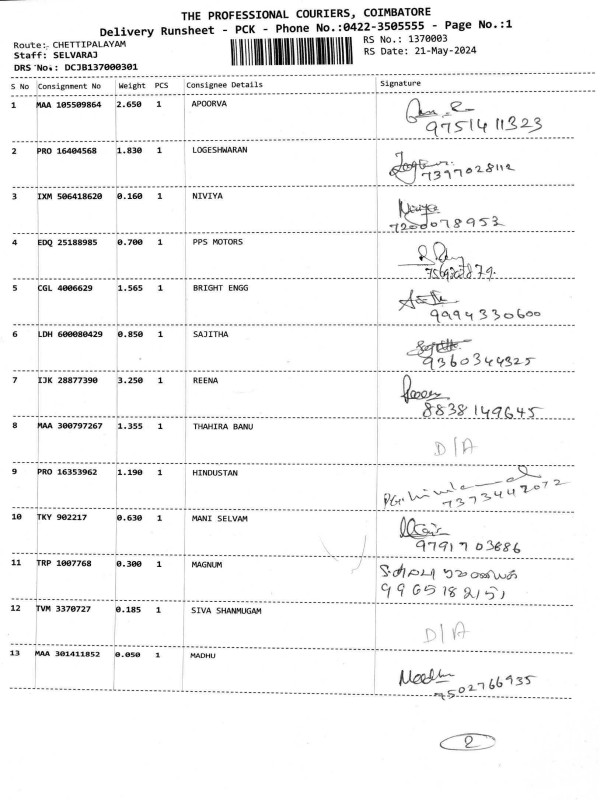 THE PROFESSIONAL COURIERS, COIMBATORE
Delivery Runsheet - PCK - Phone No.:0422-3505555 - Page No.:1
Route: CHETTIPALAYAM RS No.: 1370003
Staff: SELVARAJ RS Date: 21-May-2024
DRS No.: DCJB137000301
S No Consignment No Weight PCS Consignee Details Signature
1 MAA 105509864 2.650 1 APOORVA
9751411323
2 PRO 16404568 1.830 1 LOGESHWARAN
7397028112
3 IXM 506418620 0.160 1 NIVIYA
7200078953
4 EDQ 25188985 0.700 1 PPS MOTORS
5 CGL 4006629 1.565 1 BRIGHT ENGG
9994330600
6 LDH 600080429 0.850 1 SAJITHA
9360344325
7 IJK 28877390 3.250 1 REENA
8838149645
8 MAA 300797267 1.355 1 THAHIRA BANU
D/A
9 PRO 16353962 1.190 1 HINDUSTAN
7373442072
10 TKY 902217 0.630 1 MANI SELVAM
9791703886
11 TRP 1007768 0.300 1 MAGNUM
9965182151
12 TVM 3370727 0.185 1 SIVA SHANMUGAM
D/A
13 MAA 301411852 0.050 1 MADHU
9502766935
2